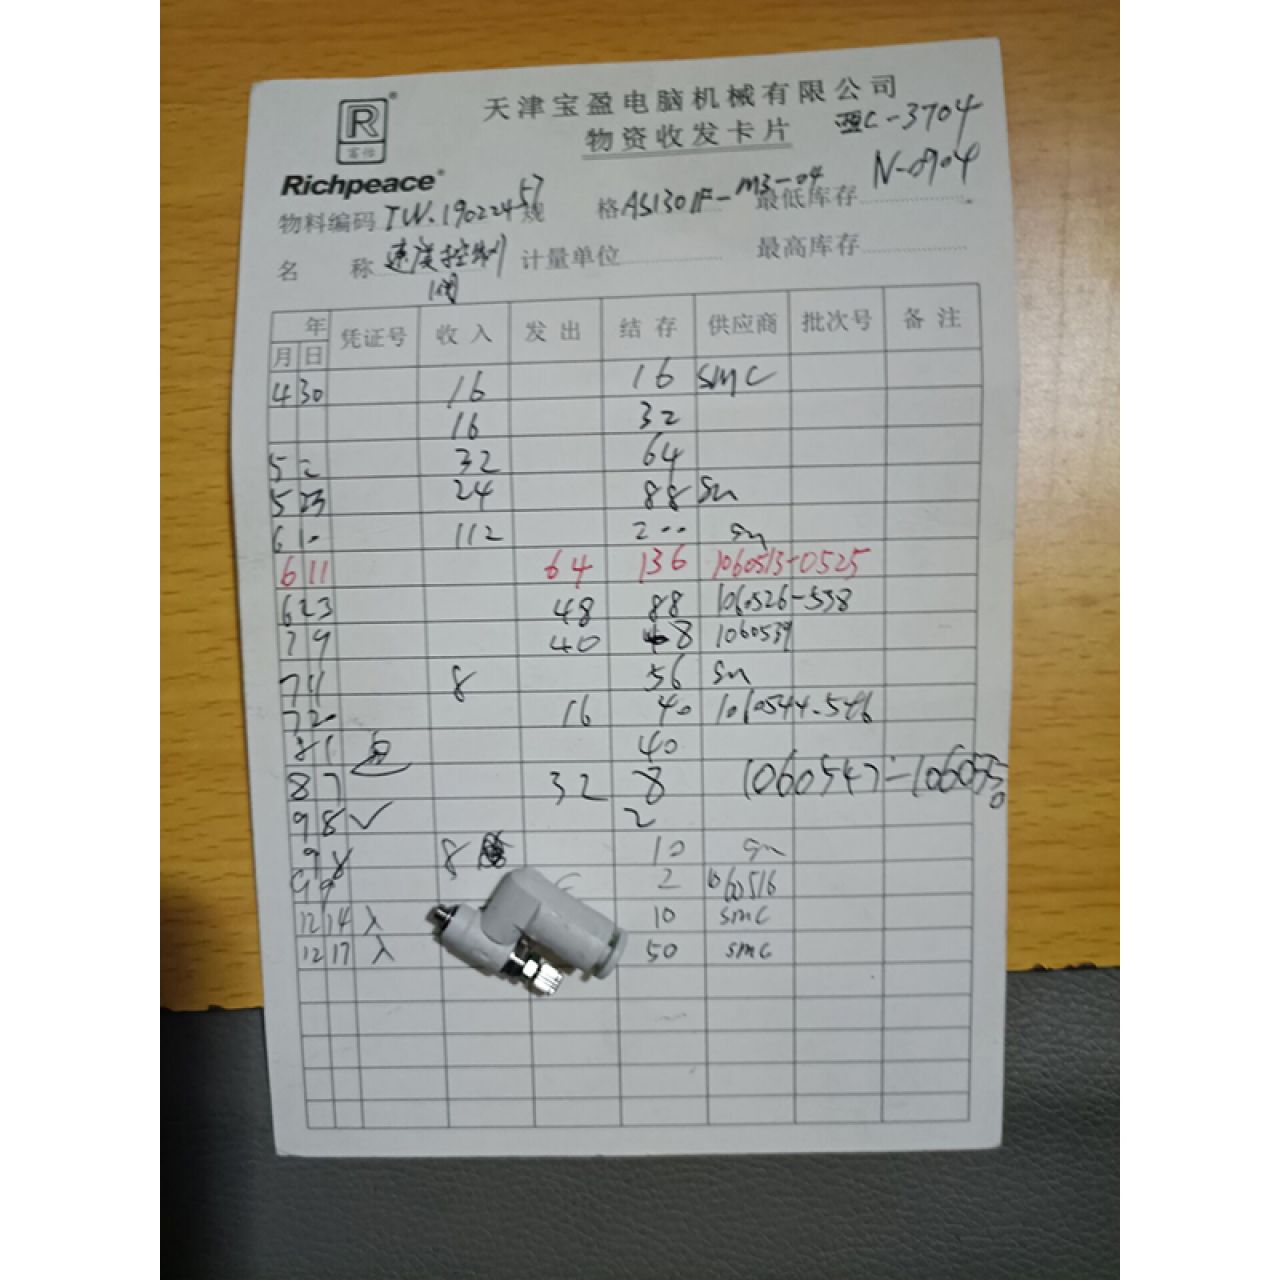 天津宝盈电脑机械有限公司
物资收发卡片
C-3704
R
富怡
Richpeace
N-0904
物料编码 TW.1902457 规 格 AS1301F-M3-04 最低库存
名 称 速度控制阀 计量单位 最高库存
年 凭证号 收入 发出 结存 供应商 批次号 备注
月 日
4 30 16 16 SMC
16 32
5 2 32 64
5 23 24 88 Sm
6 10 112 200 Sm
6 11 64 136 1060513-0525
6 23 48 88 1060526-538
7 9 40 48 1060539
7 11 8 56 Sm
7 20 16 40 1060544-546
8 1 40
8 7 32 8 1060547-1060550
9 8 ✓ 2
9 8 8 10 Sm
9 9 2 1060516
12 14 入 10 SMC
12 17 入 50 SMC